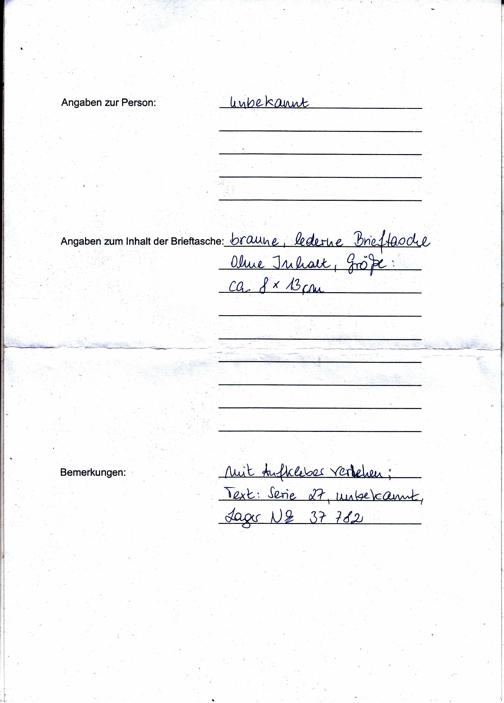 Angaben zur Person: unbekannt
Angaben zum Inhalt der Brieftasche: braune, lederne Brieftasche
Ohne Inhalt, Größe:
ca. 8 x 13 cm
Bemerkungen: Mit Aufkleber versehen;
Text: Serie 27, unbekannt,
Lager № 37 782